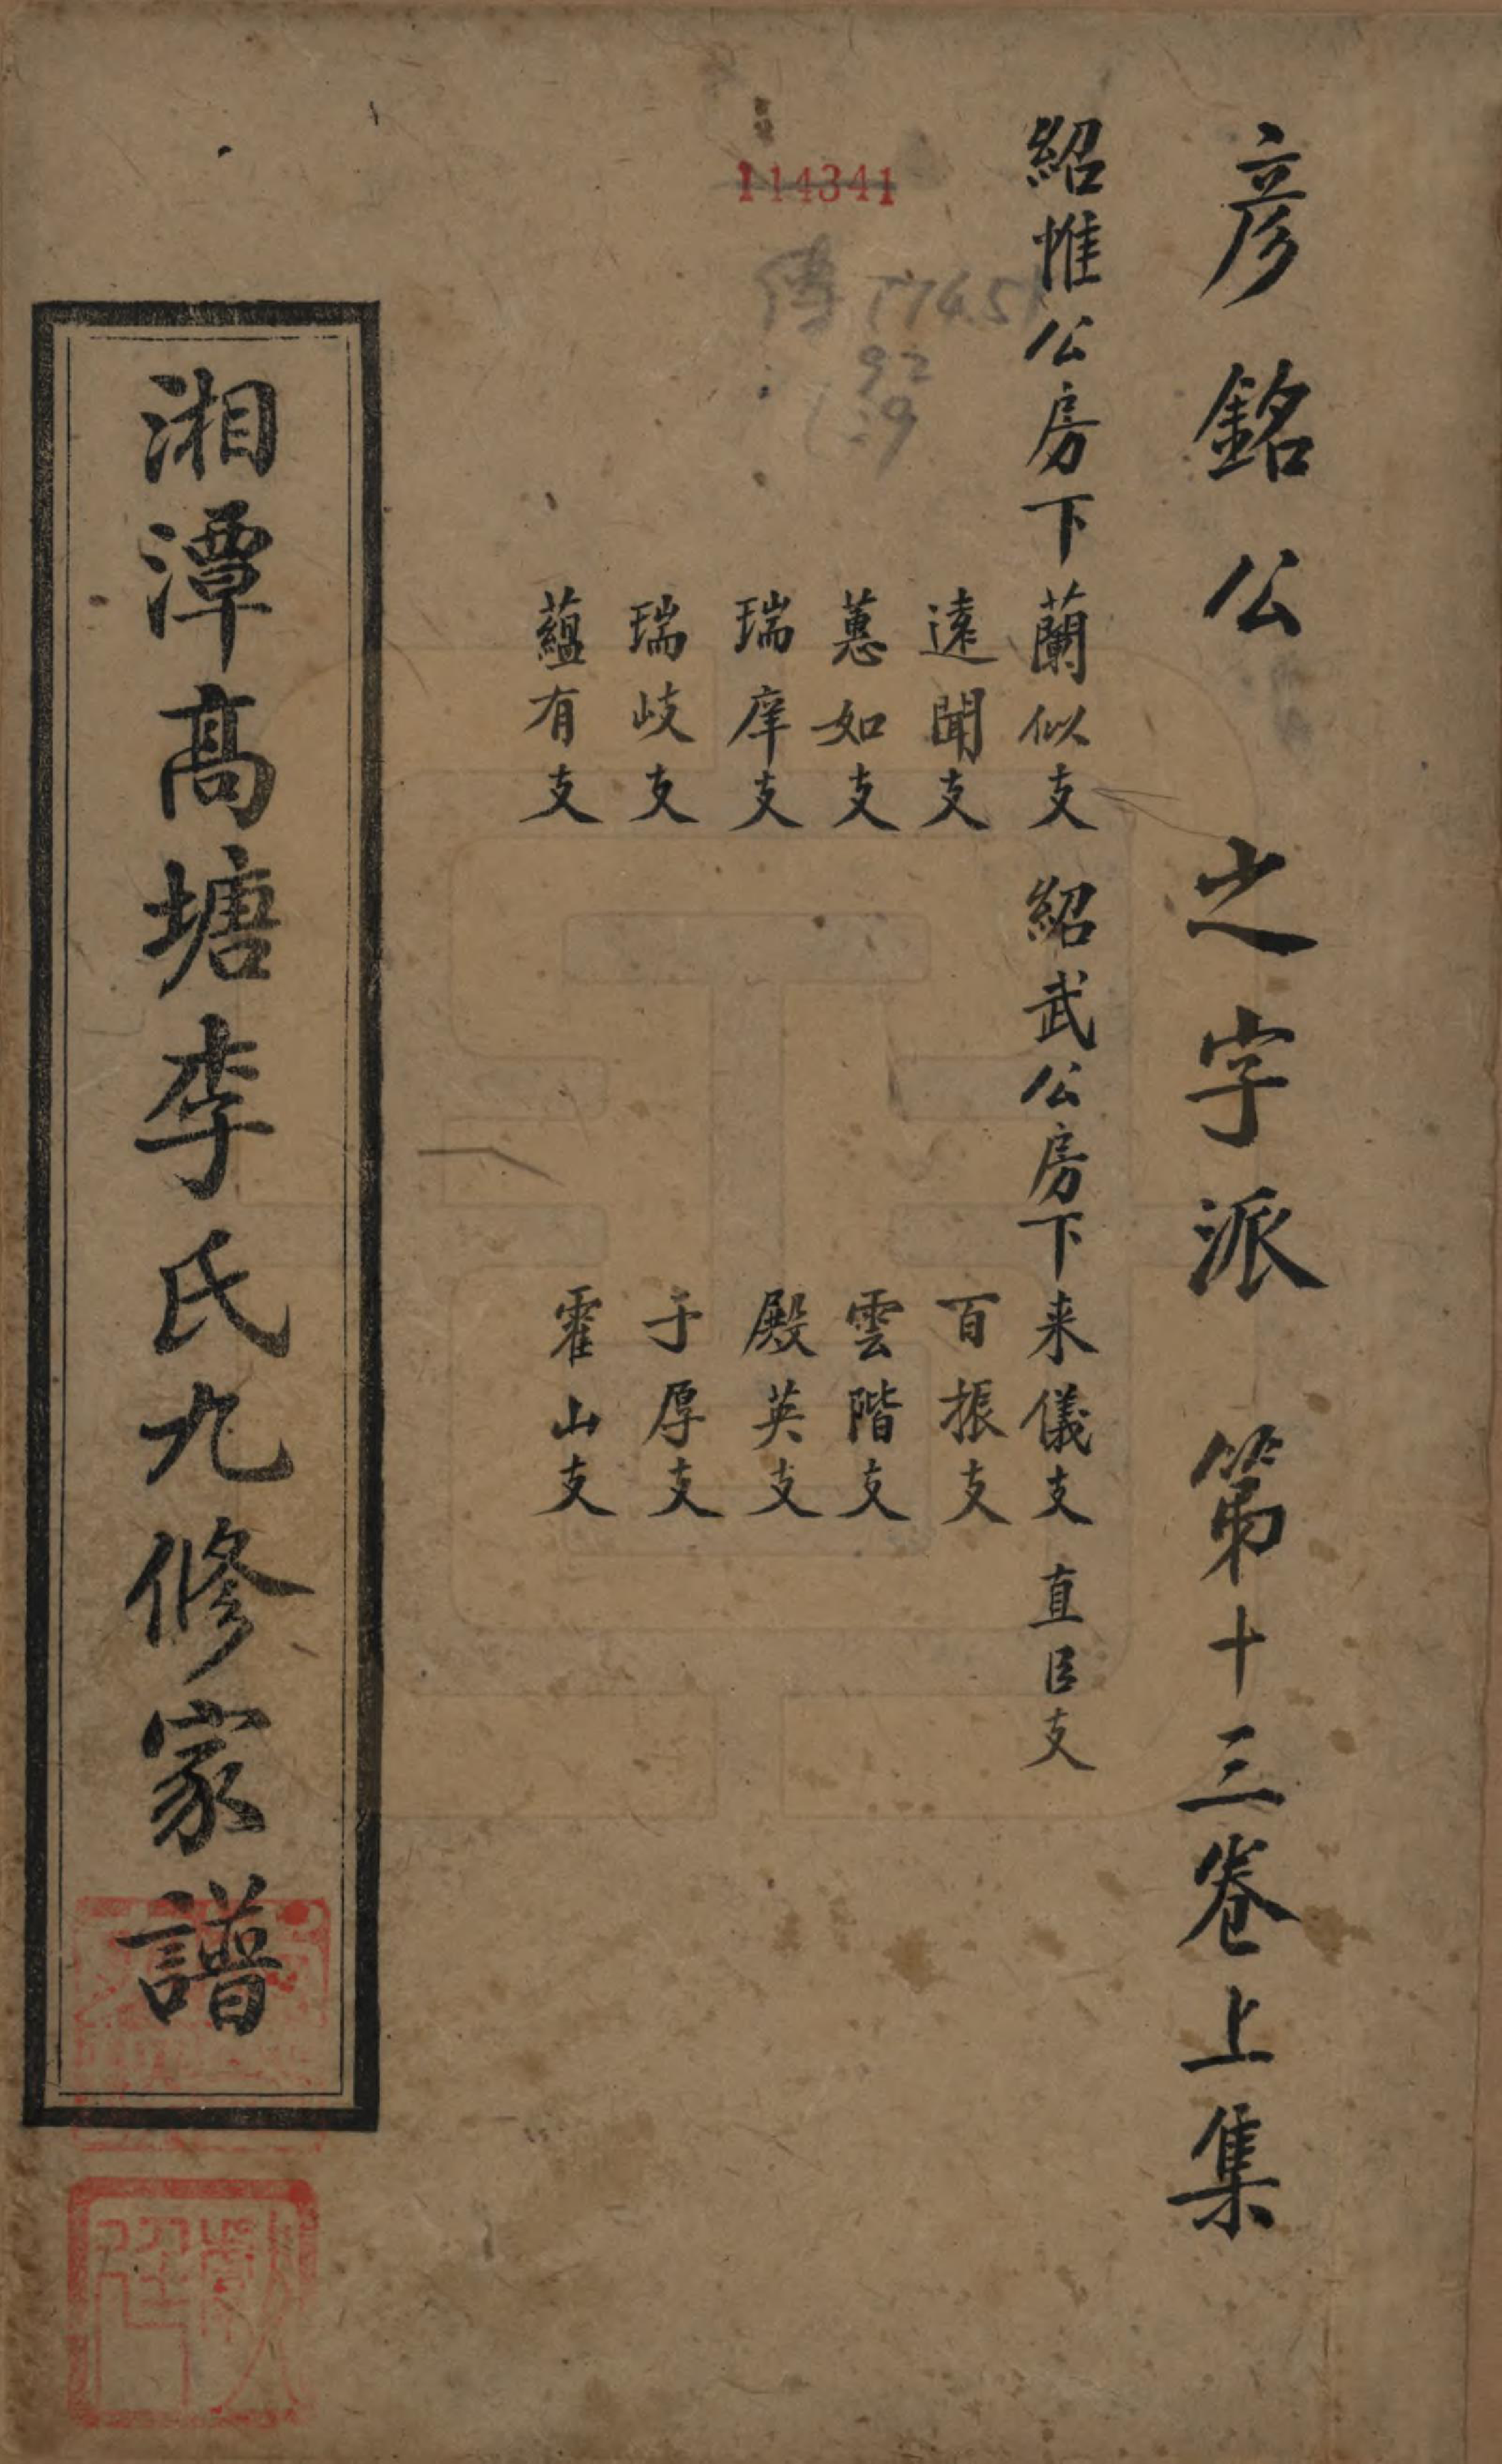 彥銘公 之字派 第十三卷上集
紹惟公房下蘭似支 紹武公房下来儀支 直臣支
遠聞支 百振支
蕙如支 雲階支
瑞庠支 殿英支
瑞岐支 子厚支
蘊有支 霍山支
114341
傳 774.51
92
:29
湘潭髙塘李氏九修家譜